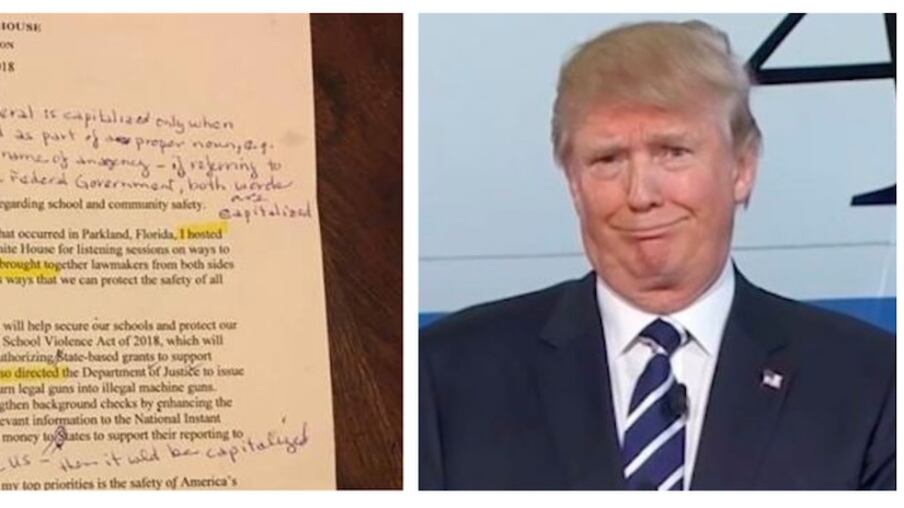 HOUSE
ON
18
is capitalized only when
as part of a proper noun, e.g.
name of an agency – if referring to
Federal Government, both words
are
egarding school and community safety.
capitalized
hat occurred in Parkland, Florida, I hosted
ite House for listening sessions on ways to
brought together lawmakers from both sides
s ways that we can protect the safety of all
will help secure our schools and protect our
School Violence Act of 2018, which will
uthorizing State-based grants to support
so directed the Department of Justice to issue
urn legal guns into illegal machine guns.
gthen background checks by enhancing the
evant information to the National Instant
money to States to support their reporting to
US – then it wld be capitalized
my top priorities is the safety of America's
A